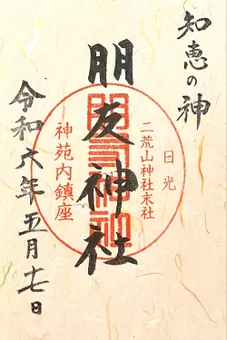 知恵の神
朋友神社
日光
二荒山神社末社
神苑内鎮座
令和六年五月十七日